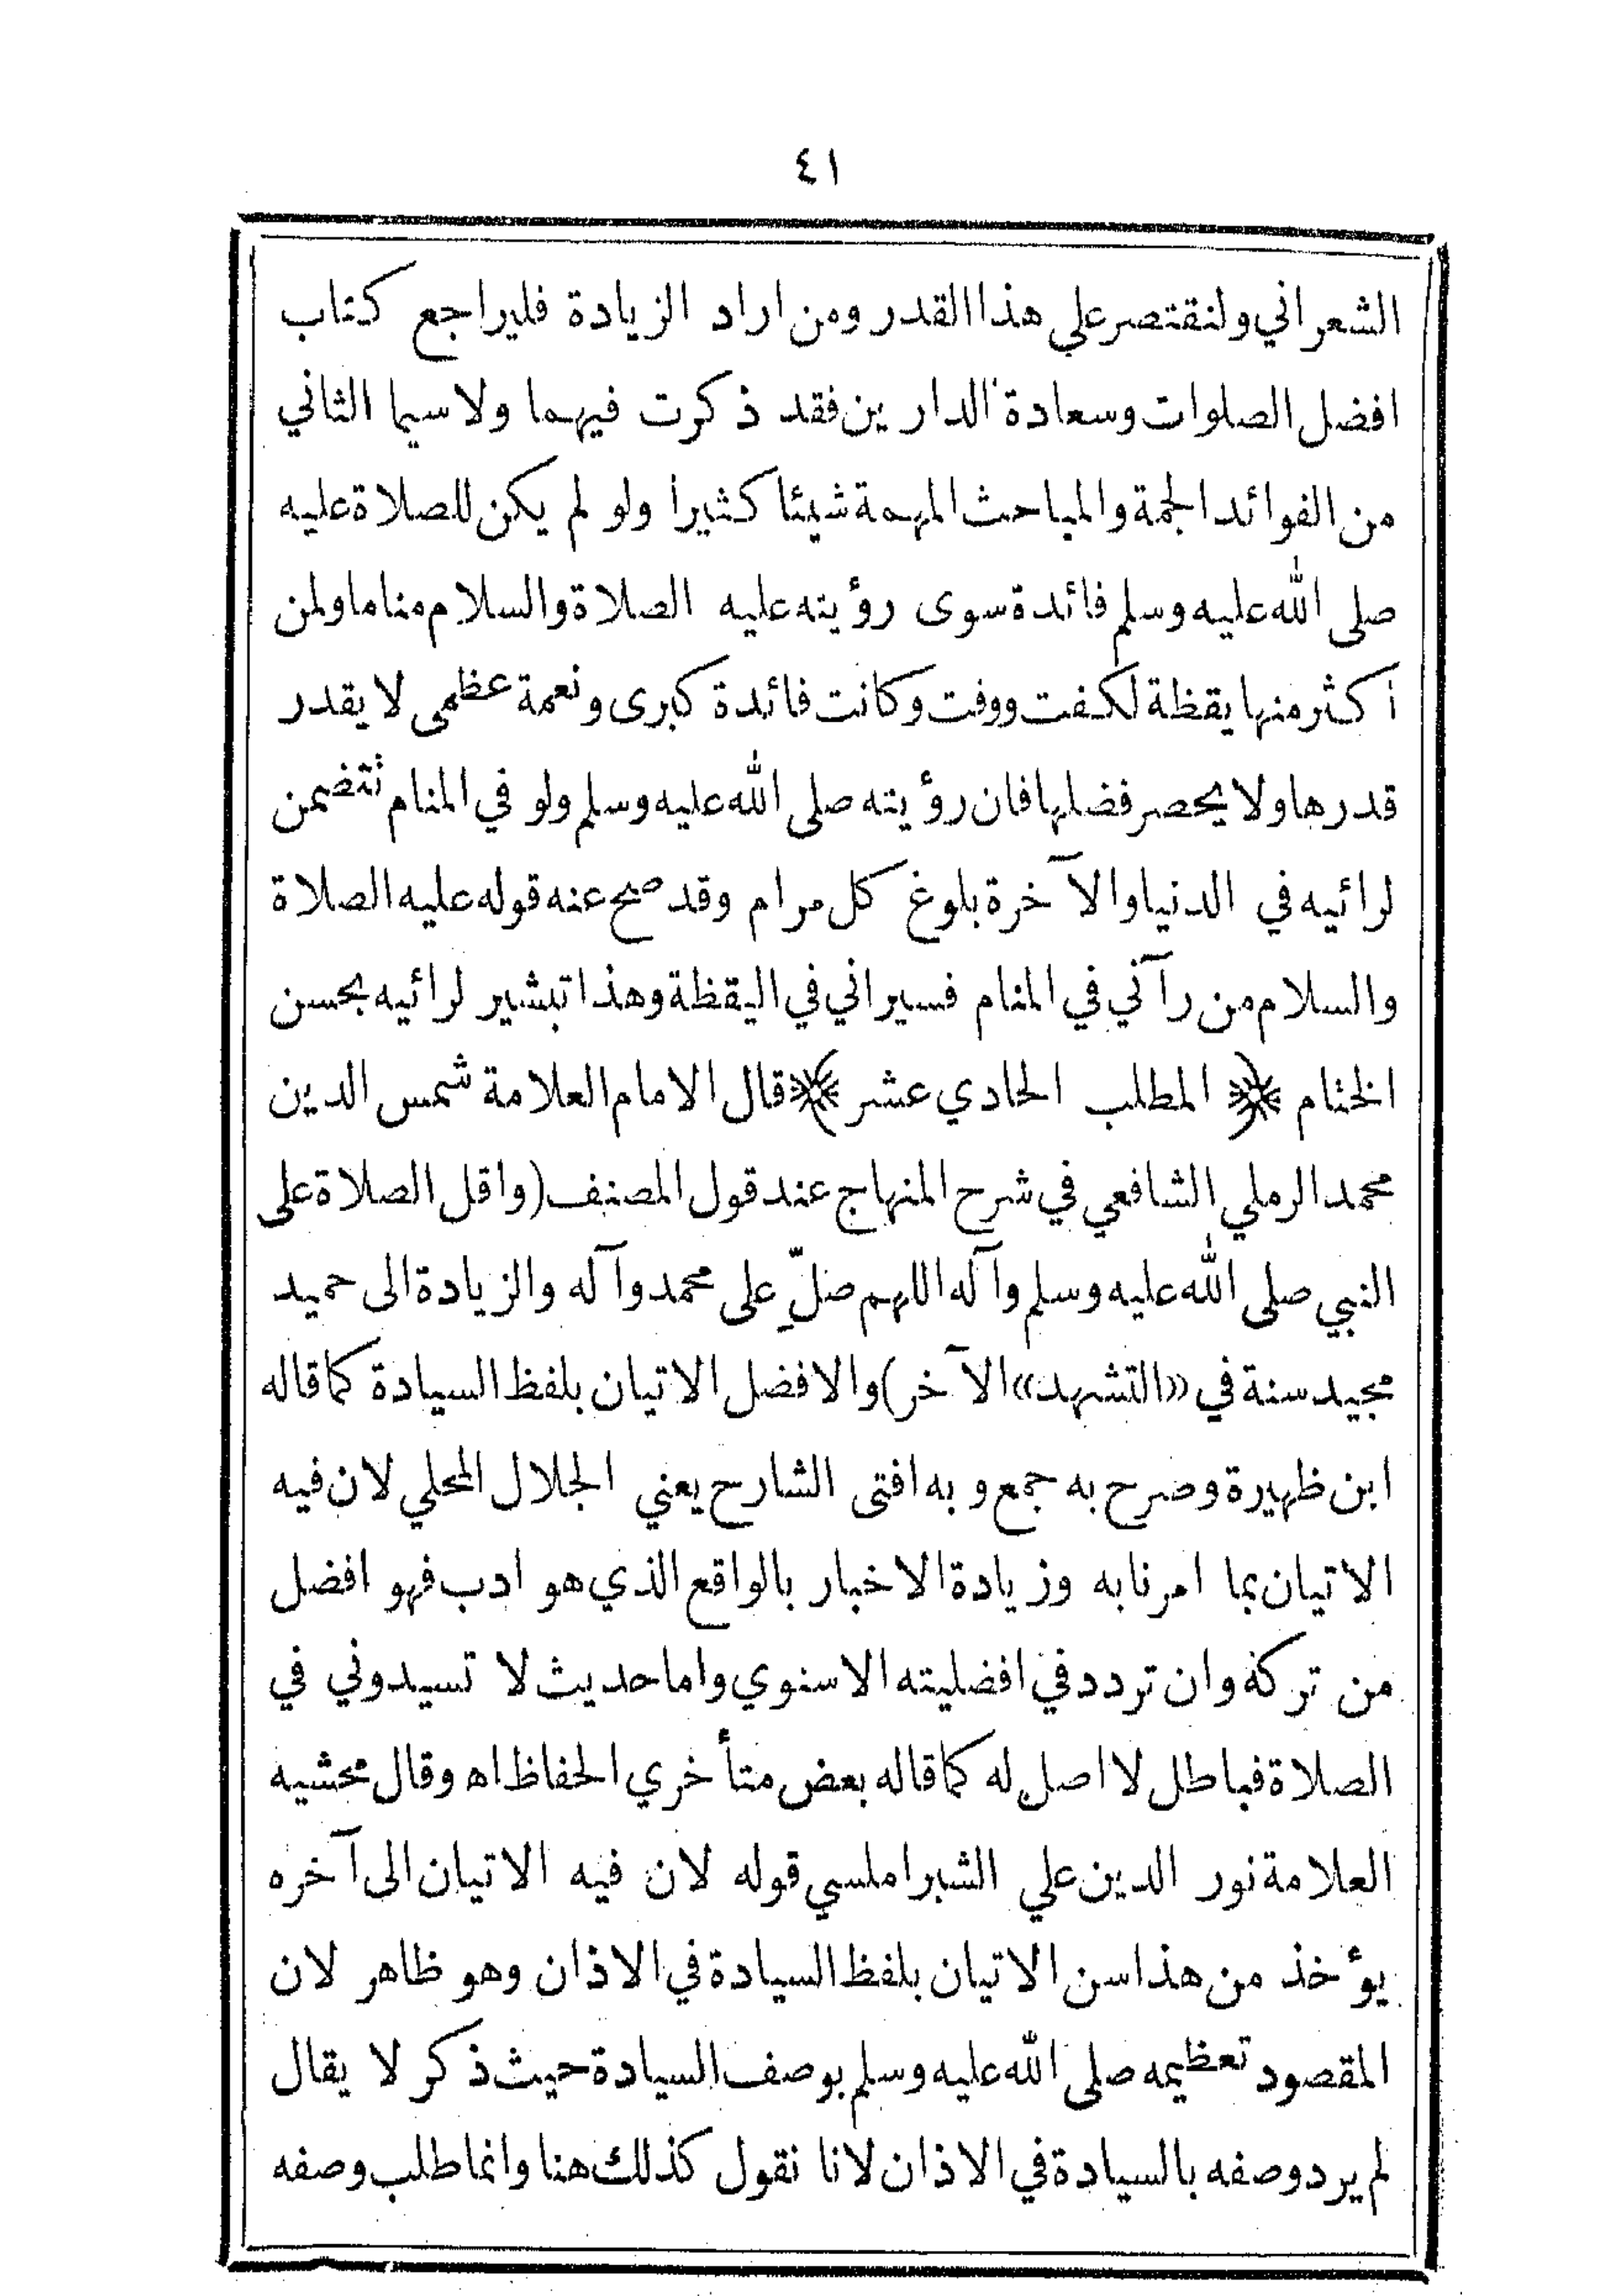 ٤١
الشعراني ولنقتصر على هذا القدر ومن اراد الزيادة فليراجع كتاب
افضل الصلوات وسعادة الدارين فقد ذكرت فيهما ولا سيما الثاني
من الفوائد الجمة والمباحث المهمة شيئا كثيرا ولو لم يكن للصلاة عليه
صلى الله عليه وسلم فائدة سوى رؤيته عليه الصلاة والسلام مناما ولمن
أكثر منها يقظة لكفت ووفت وكانت فائدة كبرى ونعمة عظمى لا يقدر
قدرها ولا يحصر فضلها فان رؤيته صلى الله عليه وسلم ولو في المنام تتضمن
لرائيه في الدنيا والآخرة بلوغ كل مرام وقد صح عنه قوله عليه الصلاة
والسلام من رآني في المنام فسيراني في اليقظة وهذا تبشير لرائيه بحسن
الختام ﴿ المطلب الحادي عشر ﴾ قال الامام العلامة شمس الدين
محمد الرملي الشافعي في شرح المنهاج عند قول المصنف (واقل الصلاة على
النبي صلى الله عليه وسلم وآله اللهم صلِّ على محمد وآله والزيادة الى حميد
مجيد سنة في «التشهد» الآخر) والافضل الاتيان بلفظ السيادة كما قاله
ابن ظهيرة وصرح به جمع وبه افتى الشارح يعني الجلال المحلي لان فيه
الاتيان بما امرنا به وزيادة الاخبار بالواقع الذي هو ادب فهو افضل
من تركه وان تردد في افضليته الاسنوي واما حديث لا تسيدوني في
الصلاة فباطل لا اصل له كما قاله بعض متأخري الحفاظ اه وقال محشيه
العلامة نور الدين علي الشبراملسي قوله لان فيه الاتيان الى آخره
يؤخذ من هذا سن الاتيان بلفظ السيادة في الاذان وهو ظاهر لان
المقصود تعظيمه صلى الله عليه وسلم بوصف السيادة حيث ذكر لا يقال
لم يرد وصفه بالسيادة في الاذان لانا نقول كذلك هنا وانما طلب وصفه